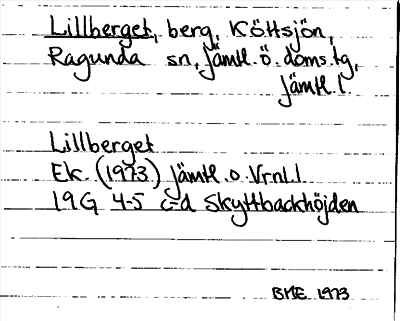 Lillberget, berg, Köttsjön,
Ragunda sn, Jämtl. ö. doms.tg,
Jämtl. l.
Lillberget
Ek. (1973) Jämtl. o. Vrnl.l
19G 4-5 c-d Skyttbackhöjden
BME 1973